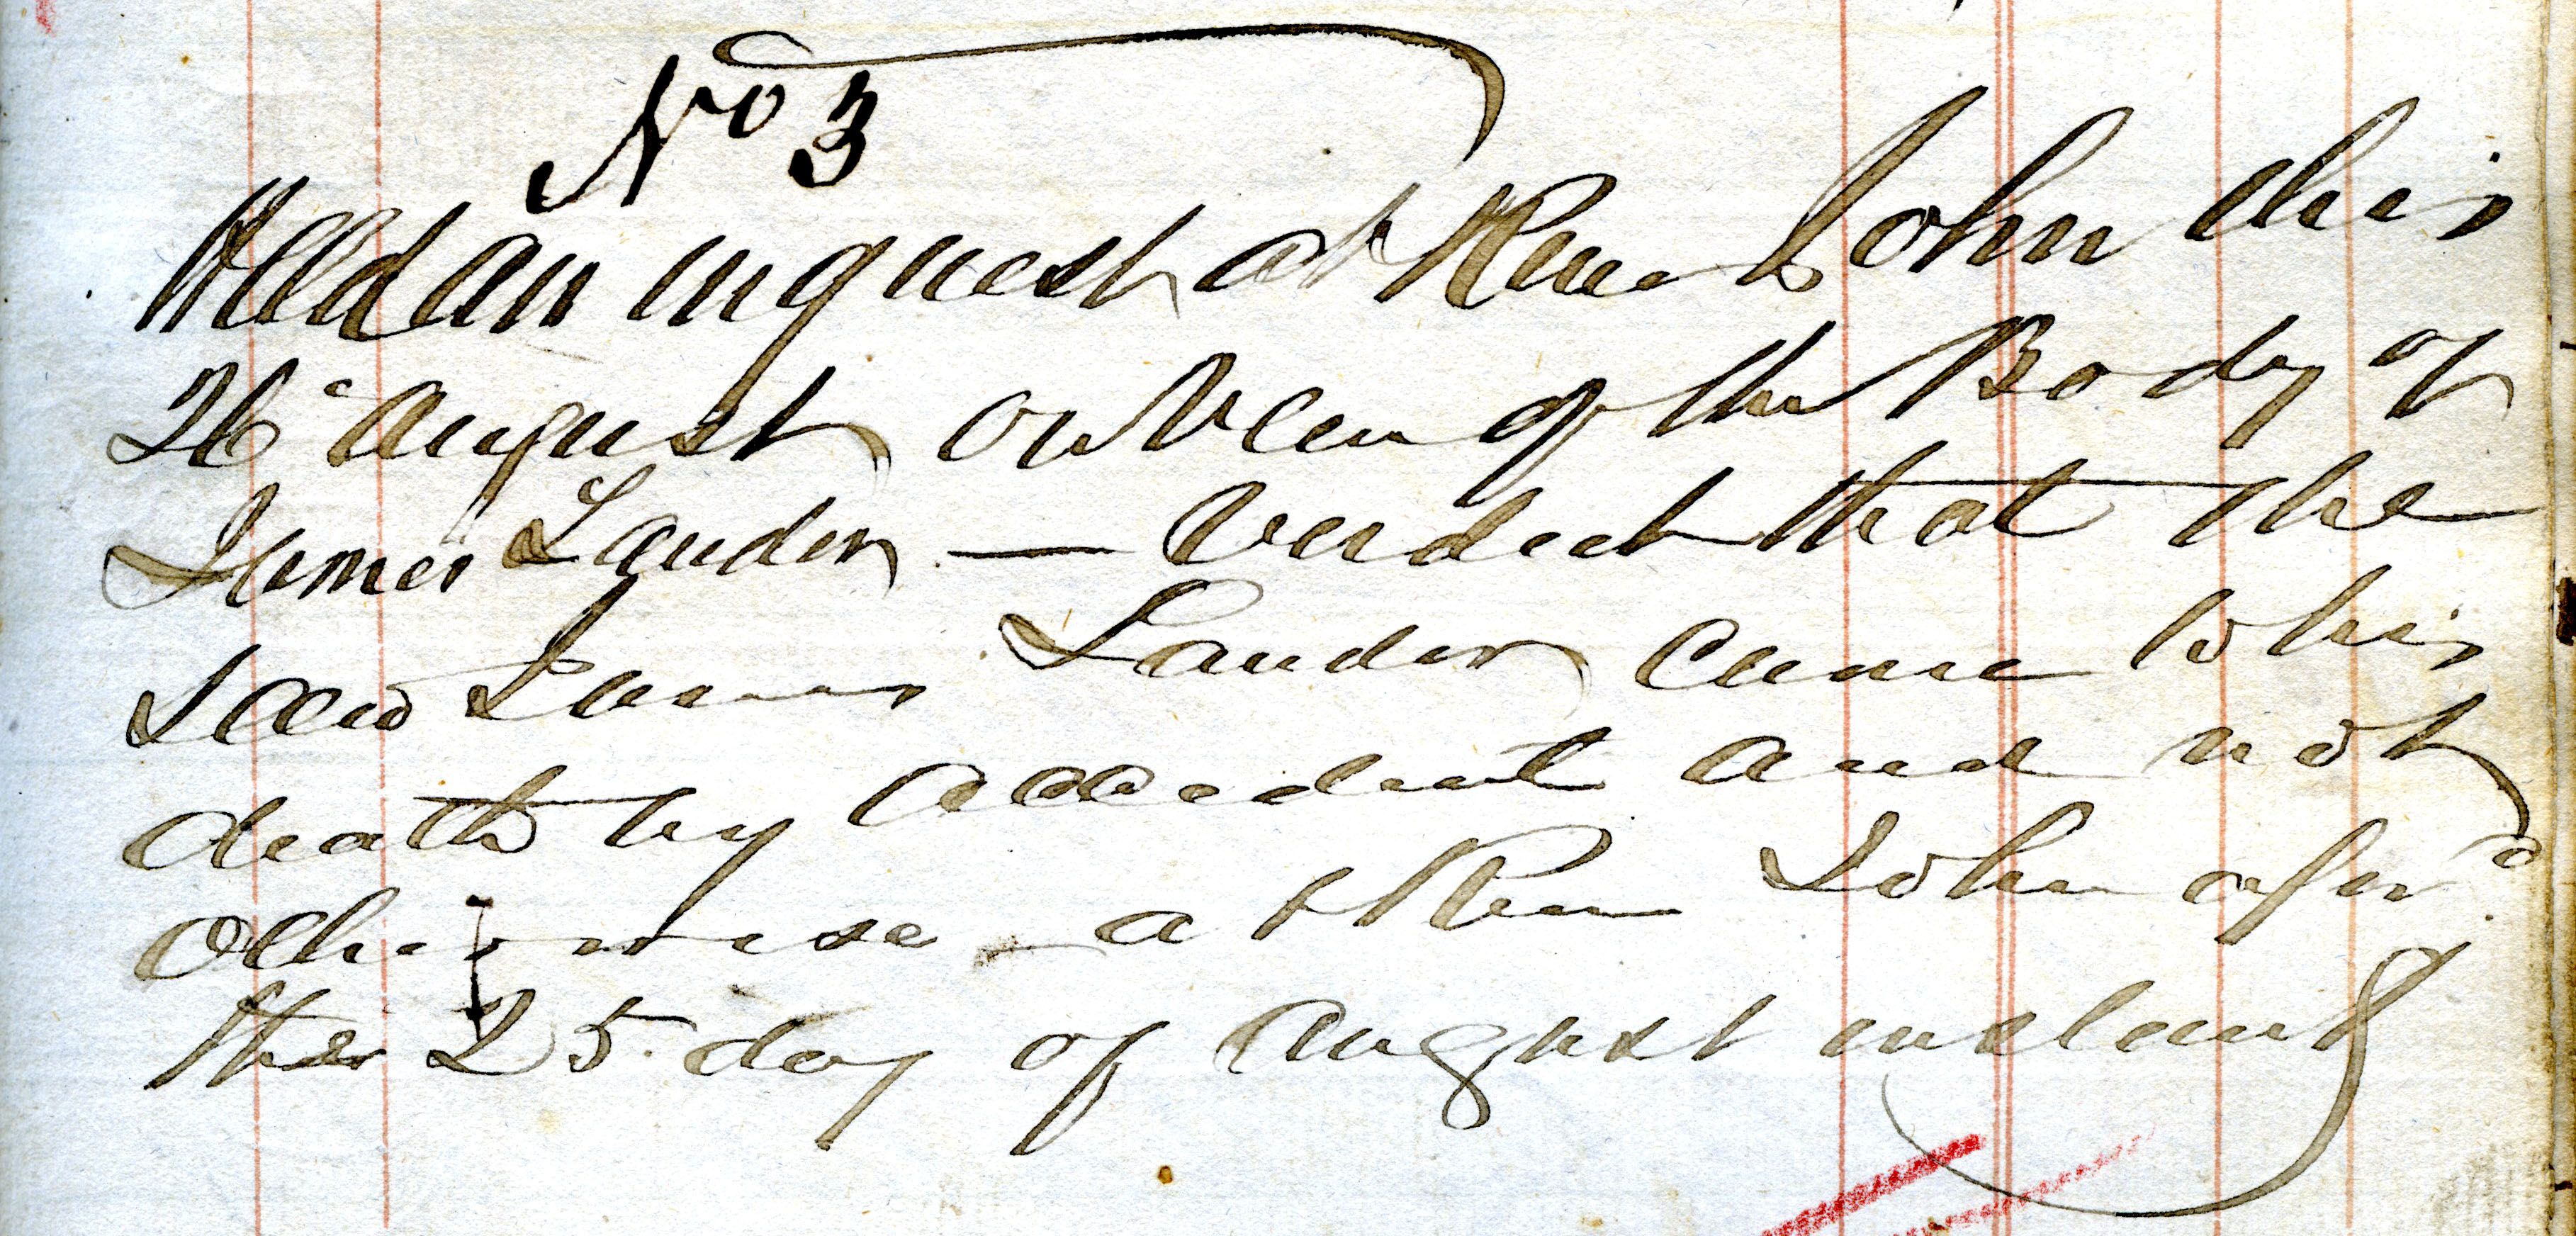 No 3
Held an inquest at River John this
26 August on View of the Body of
James Lauder — Verdict that the
said James Lauder came to his
death by accident and not
otherwise at River John afsd
the 25 day of August instant